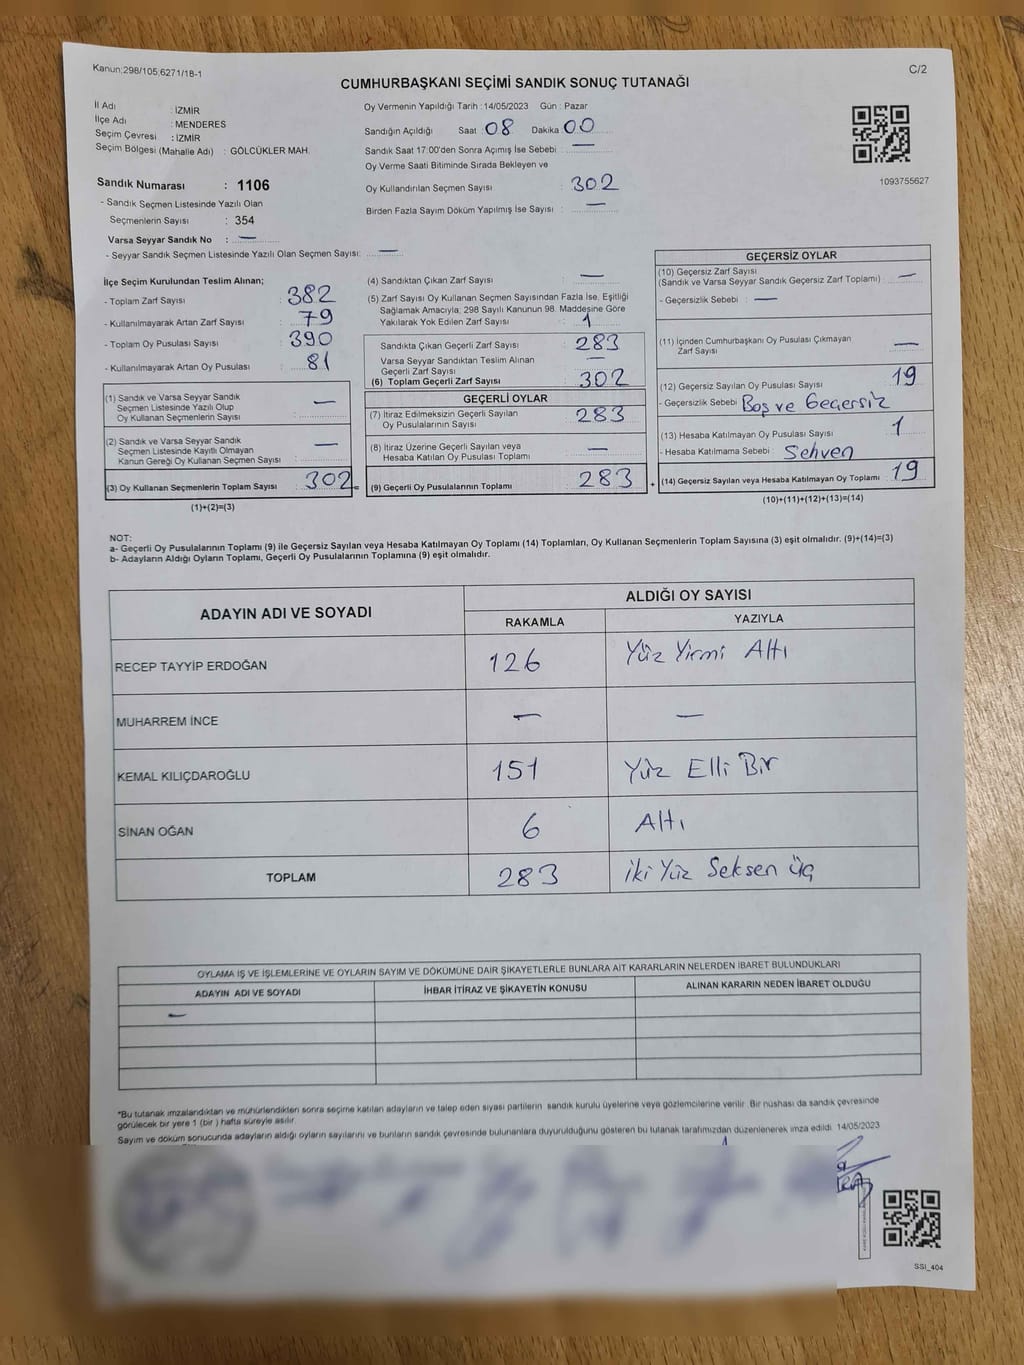 Kanun:298/105,6271/18-1
C/2
CUMHURBAŞKANI SEÇİMİ SANDIK SONUÇ TUTANAĞI
İl Adı : İZMİR
İlçe Adı : MENDERES
Seçim Çevresi : İZMİR
Seçim Bölgesi (Mahalle Adı) : GÖLCÜKLER MAH.
Sandık Numarası : 1106
- Sandık Seçmen Listesinde Yazılı Olan
Seçmenlerin Sayısı : 354
Varsa Seyyar Sandık No : —
- Seyyar Sandık Seçmen Listesinde Yazılı Olan Seçmen Sayısı: —
Oy Vermenin Yapıldığı Tarih : 14/05/2023 Gün : Pazar
Sandığın Açıldığı Saat : 08 Dakika : 00
Sandık Saat 17:00'den Sonra Açımış İse Sebebi : —
Oy Verme Saati Bitiminde Sırada Bekleyen ve
Oy Kullandırılan Seçmen Sayısı : 302
Birden Fazla Sayım Döküm Yapılmış İse Sayısı : —
1093755627
İlçe Seçim Kurulundan Teslim Alınan;
- Toplam Zarf Sayısı : 382
- Kullanılmayarak Artan Zarf Sayısı : 79
- Toplam Oy Pusulası Sayısı : 390
- Kullanılmayarak Artan Oy Pusulası : 81
(1) Sandık ve Varsa Seyyar Sandık
Seçmen Listesinde Yazılı Olup
Oy Kullanan Seçmenlerin Sayısı : —
(2) Sandık ve Varsa Seyyar Sandık
Seçmen Listesinde Kayıtlı Olmayan
Kanun Gereği Oy Kullanan Seçmen Sayısı : —
(3) Oy Kullanan Seçmenlerin Toplam Sayısı : 302 =
(1)+(2)=(3)
(4) Sandıktan Çıkan Zarf Sayısı : —
(5) Zarf Sayısı Oy Kullanan Seçmen Sayısından Fazla İse, Eşitliği
Sağlamak Amacıyla; 298 Sayılı Kanunun 98. Maddesine Göre
Yakılarak Yok Edilen Zarf Sayısı : 1
Sandıkta Çıkan Geçerli Zarf Sayısı : 283
Varsa Seyyar Sandıktan Teslim Alınan
Geçerli Zarf Sayısı : —
(6) Toplam Geçerli Zarf Sayısı : 302
GEÇERLİ OYLAR
(7) İtiraz Edilmeksizin Geçerli Sayılan
Oy Pusulalarının Sayısı : 283
(8) İtiraz Üzerine Geçerli Sayılan veya
Hesaba Katılan Oy Pusulası Toplamı : —
(9) Geçerli Oy Pusulalarının Toplamı : 283 +
GEÇERSİZ OYLAR
(10) Geçersiz Zarf Sayısı
(Sandık ve Varsa Seyyar Sandık Geçersiz Zarf Toplamı) : —
- Geçersizlik Sebebi : —
(11) İçinden Cumhurbaşkanı Oy Pusulası Çıkmayan
Zarf Sayısı : —
(12) Geçersiz Sayılan Oy Pusulası Sayısı : 19
- Geçersizlik Sebebi : Boş ve Geçersiz
(13) Hesaba Katılmayan Oy Pusulası Sayısı : 1
- Hesaba Katılmama Sebebi : Sehven
(14) Geçersiz Sayılan veya Hesaba Katılmayan Oy Toplamı : 19
(10)+(11)+(12)+(13)=(14)
NOT:
a- Geçerli Oy Pusulalarının Toplamı (9) ile Geçersiz Sayılan veya Hesaba Katılmayan Oy Toplamı (14) Toplamları, Oy Kullanan Seçmenlerin Toplam Sayısına (3) eşit olmalıdır. (9)+(14)=(3)
b- Adayların Aldığı Oyların Toplamı, Geçerli Oy Pusulalarının Toplamına (9) eşit olmalıdır.
ADAYIN ADI VE SOYADI
ALDIĞI OY SAYISI
RAKAMLA YAZIYLA
RECEP TAYYİP ERDOĞAN 126 Yüz Yirmi Altı
MUHARREM İNCE — —
KEMAL KILIÇDAROĞLU 151 Yüz Elli Bir
SİNAN OĞAN 6 Altı
TOPLAM 283 İki Yüz Seksen Üç
OYLAMA İŞ VE İŞLEMLERİNE VE OYLARIN SAYIM VE DÖKÜMÜNE DAİR ŞİKAYETLERLE BUNLARA AİT KARARLARIN NELERDEN İBARET BULUNDUKLARI
ADAYIN ADI VE SOYADI İHBAR İTİRAZ VE ŞİKAYETİN KONUSU ALINAN KARARIN NEDEN İBARET OLDUĞU
—
*Bu tutanak imzalandıktan ve mühürlendikten sonra seçime katılan adayların ve talep eden siyasi partilerin sandık kurulu üyelerine veya gözlemcilerine verilir. Bir nüshası da sandık çevresinde
görülecek bir yere 1 (bir ) hafta süreyle asılır.
Sayım ve döküm sonucunda adayların aldığı oyların sayılarını ve bunların sandık çevresinde bulunanlara duyurulduğunu gösteren bu tutanak tarafımızdan düzenlenerek imza edildi. 14/05/2023
SSI_404